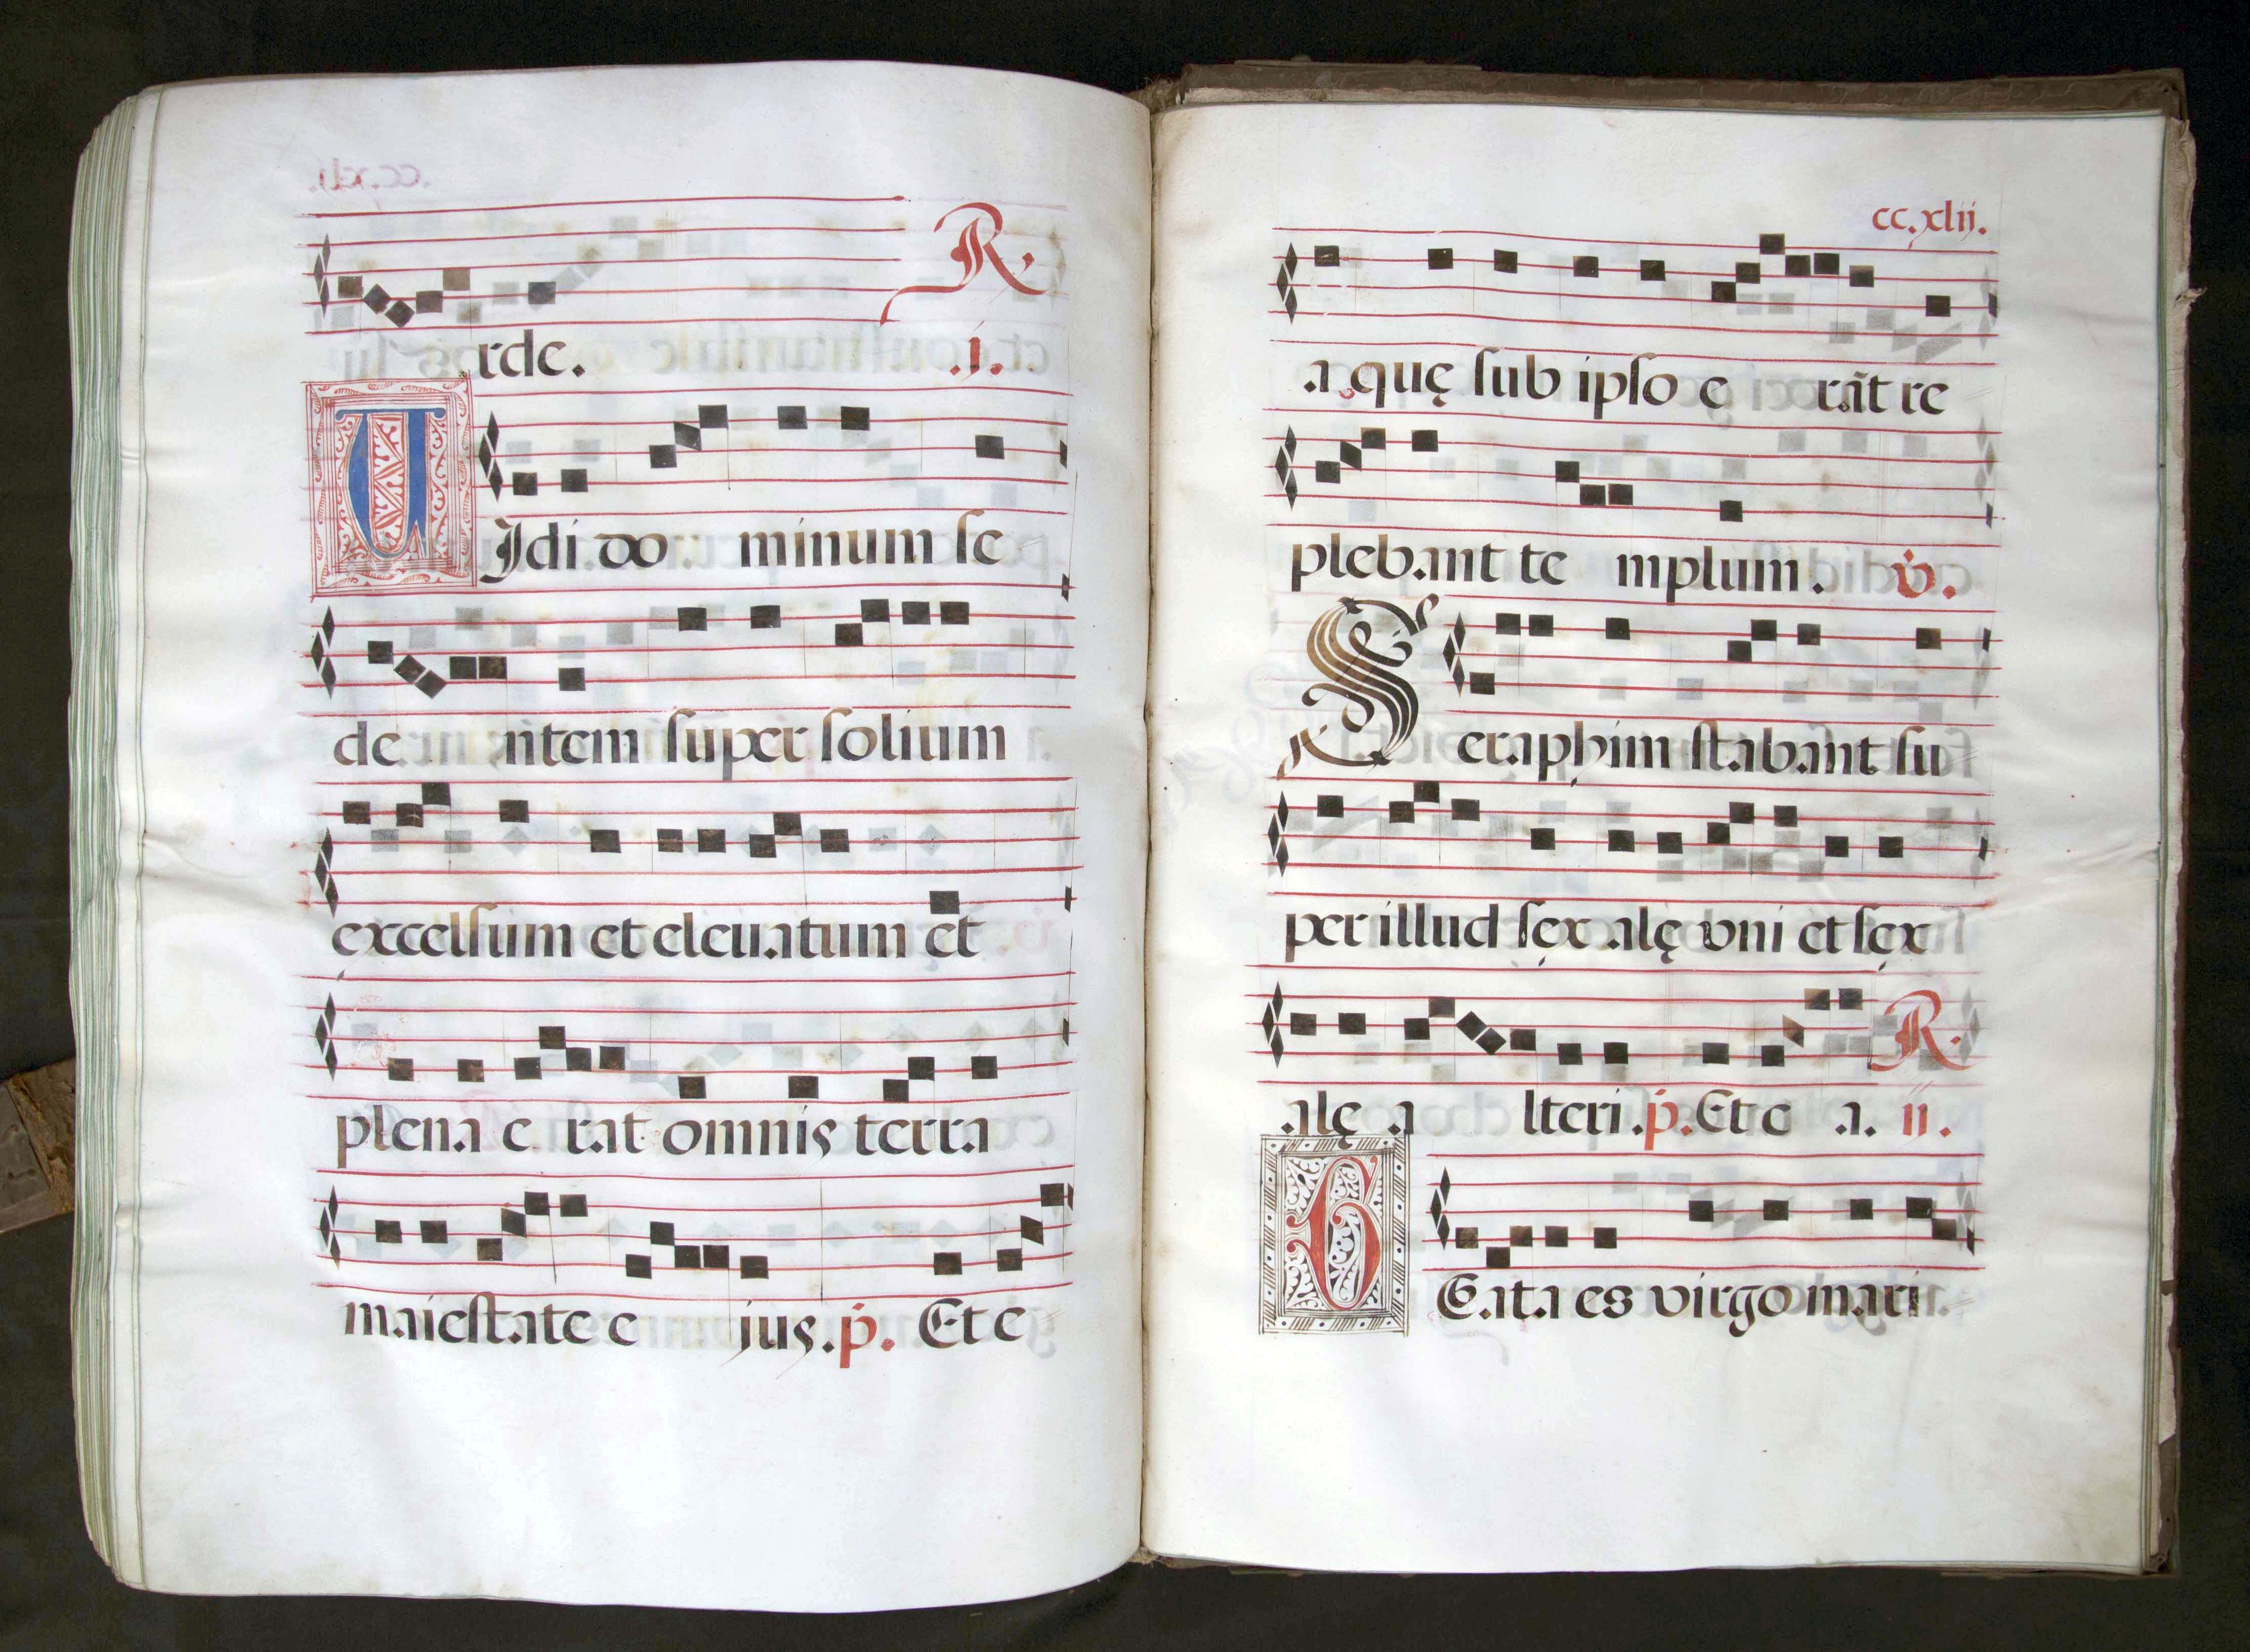 R.
rde. .i.
VIdi do minum se
de ntem super solium
excelsum et eleuatum et
plena e rat omnis terra
maiestate e jus. p. Et e
cc.xlii.
a quę sub ipso e rãt re
plebant te mplum. v.
Seraphim stabant su
per illud sęx alę vni et sęx
R.
alę a lteri. p. Et e a. ii.
BEata es virgo mari